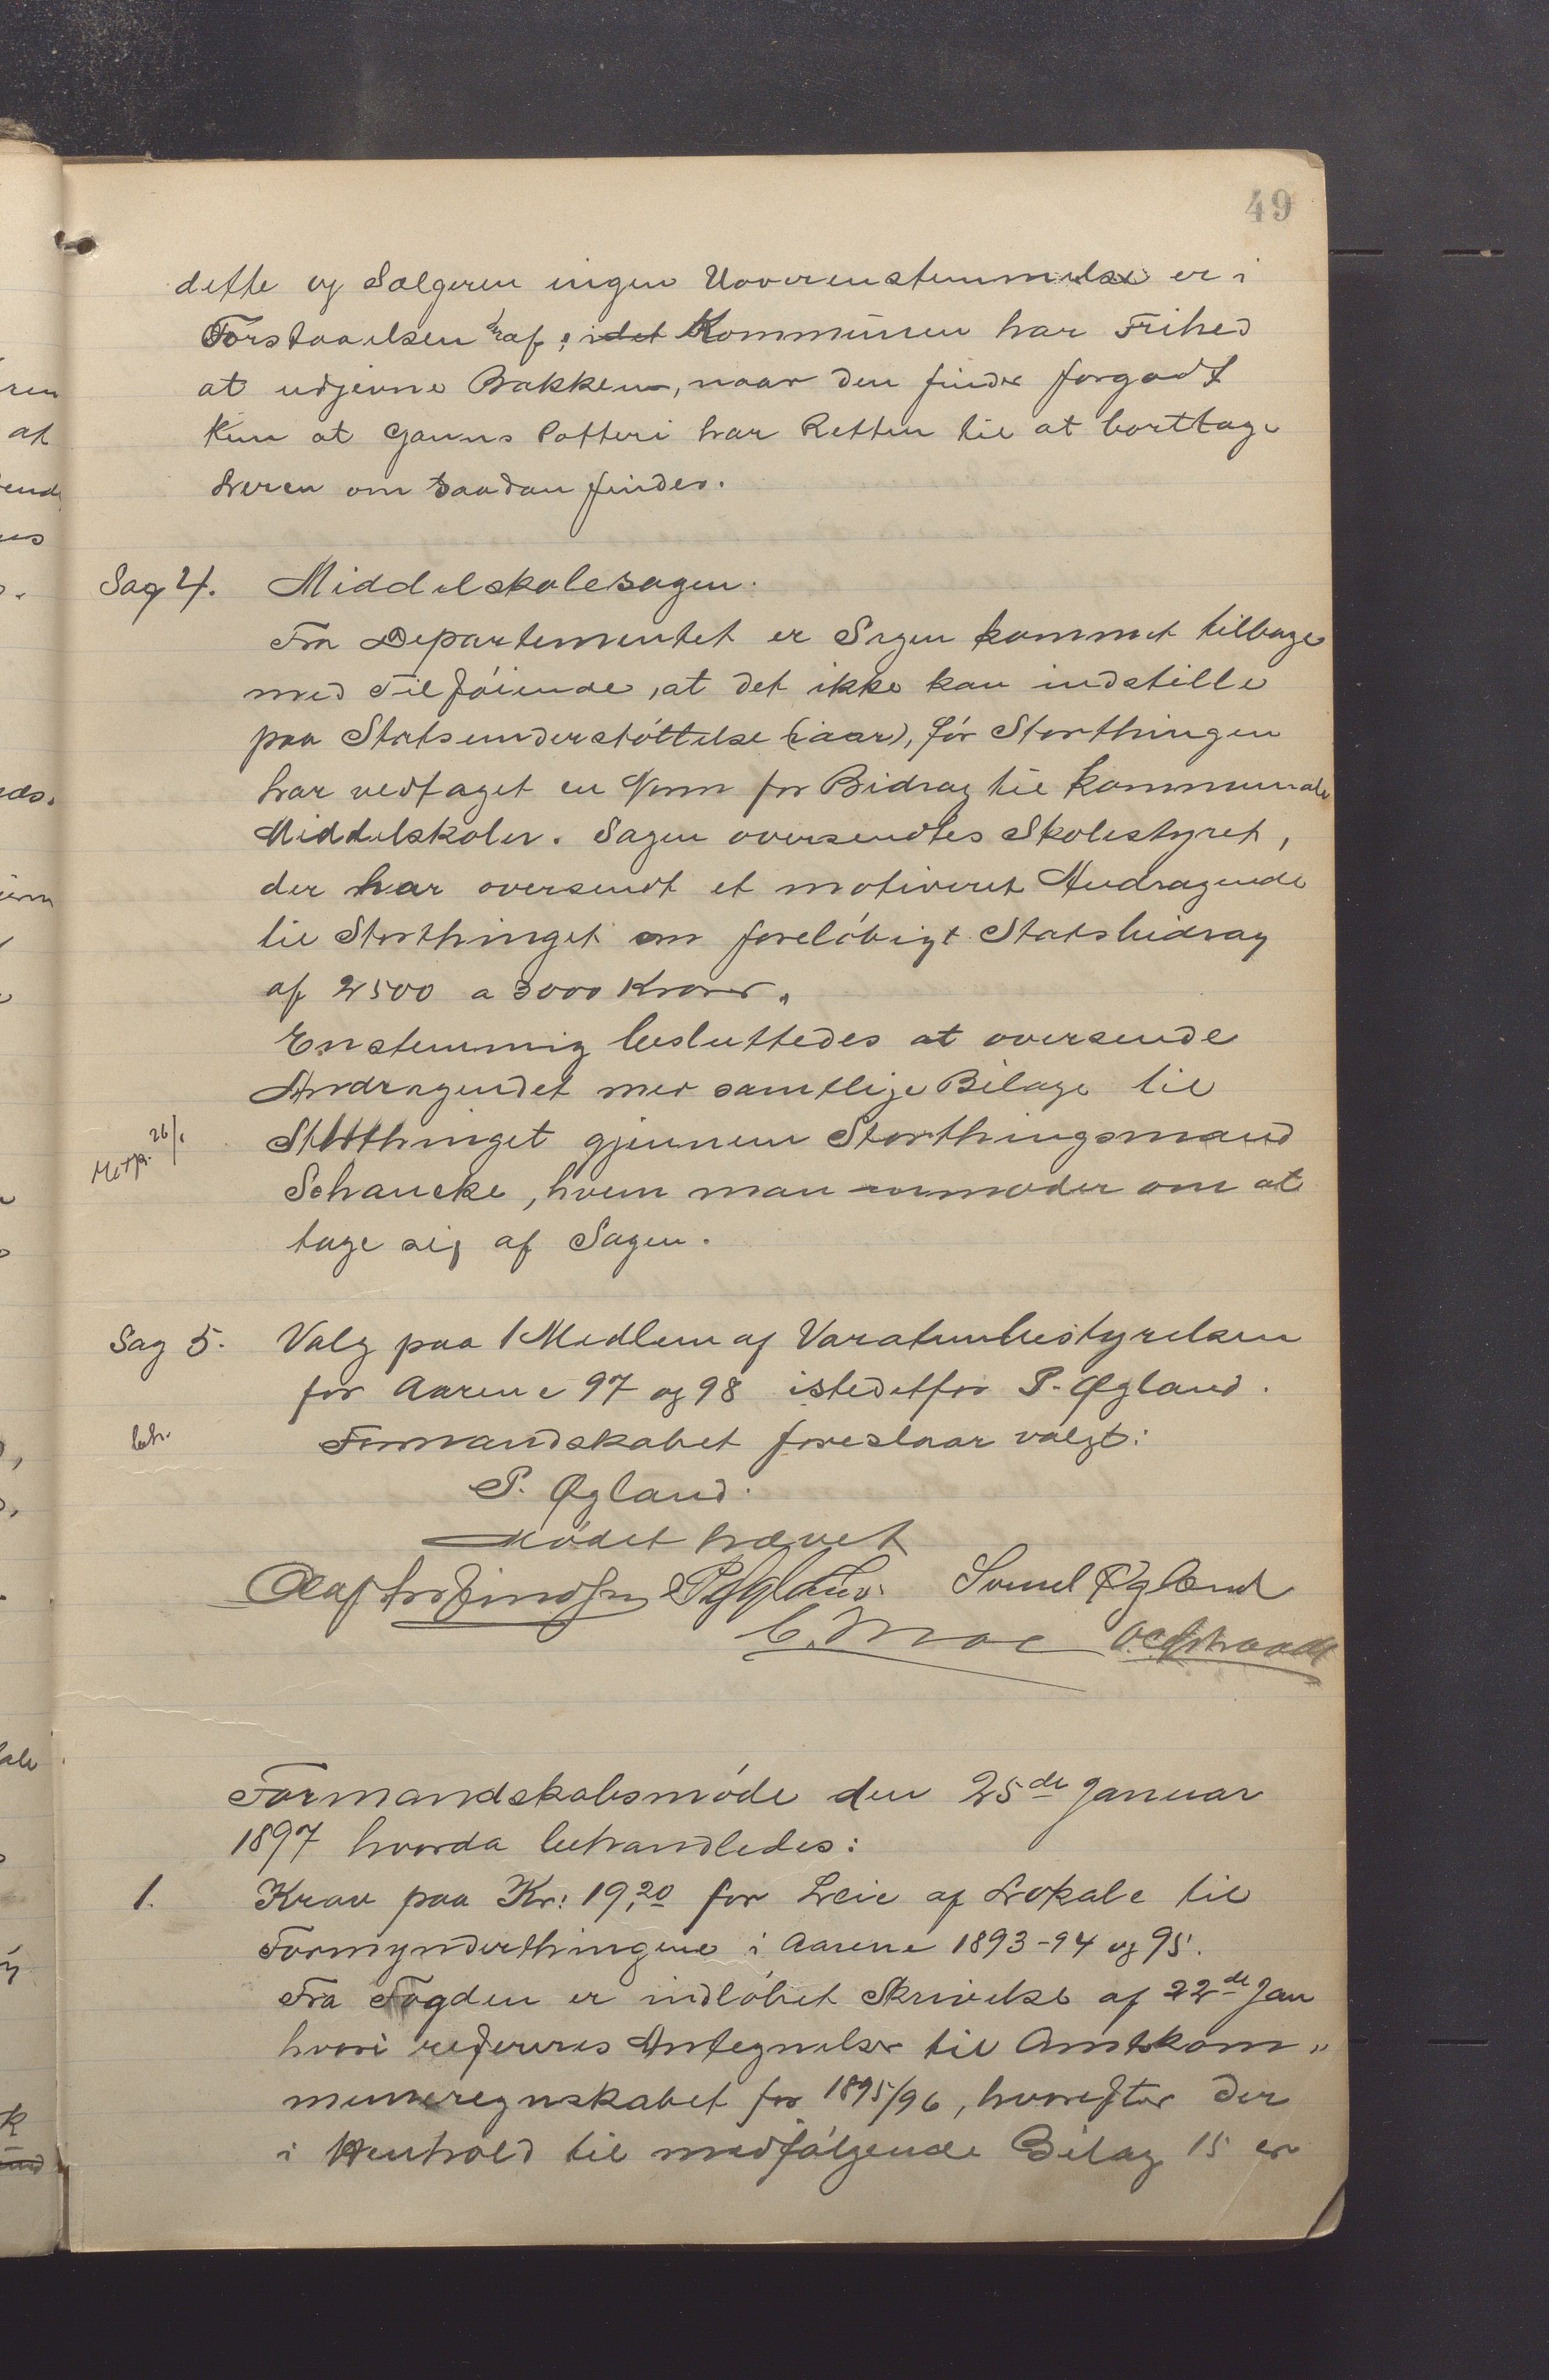 49
dette og Sælgeren ingen Uoverenstemmelse er i
Forstaaelsen hraf; idet Kommunen har Frihed
at udjevne Bakken, naar den finder forgodt
Kun at Ganns Potteri har Retten til at borttage
Leren om saadan findes.
Sag 4. Middelskolesagen.
Fra Departementet er Sagen kommet tilbage
med Tilføiende, at det ikke kan indstille
paa Statsunderstøttelse (iaar), før Storthingen
har vedtaget en Norm for Bidrag til kommunale
Middelskoler. Sagen oversendtes Skolestyret,
der har oversendt et motiveret Andragende
til Storthinget om foreløbigt Statsbidrag
af 2500 a 3000 Kroner.
Enstemmig besluttedes at oversende
Andragendet med samtlige Bilage til
26/1 Storthinget gjennem Storthingsmand
Schancke, hvem man anmoder om at
tage sig af Sagen.
Sag 5. Valg paa 1 Medlem af Varatunbestyrelsen
for Aarene 97 og 98 istedetfor P. Øgland.
beh. Formandskabet foreslaar valgt:
P. Øgland.
Mødet hævet
Olaf P Øgland. Svend Øgland
C. Moe
Formandskabsmøde den 25de Januar
1897 hvorda behandledes:
1. Krav paa Kr: 19,20 for Leie af Lokale til
Formynderthingene i Aarene 1893-94 og 95.
Fra Fogden er indløbet Skrivelse af 22de Jan
hvori refereres Antegnelser til Amtskom„
muneregnskabet for 1895/96, hvorefter der
i Henhold til medfølgende Bilag 15 er